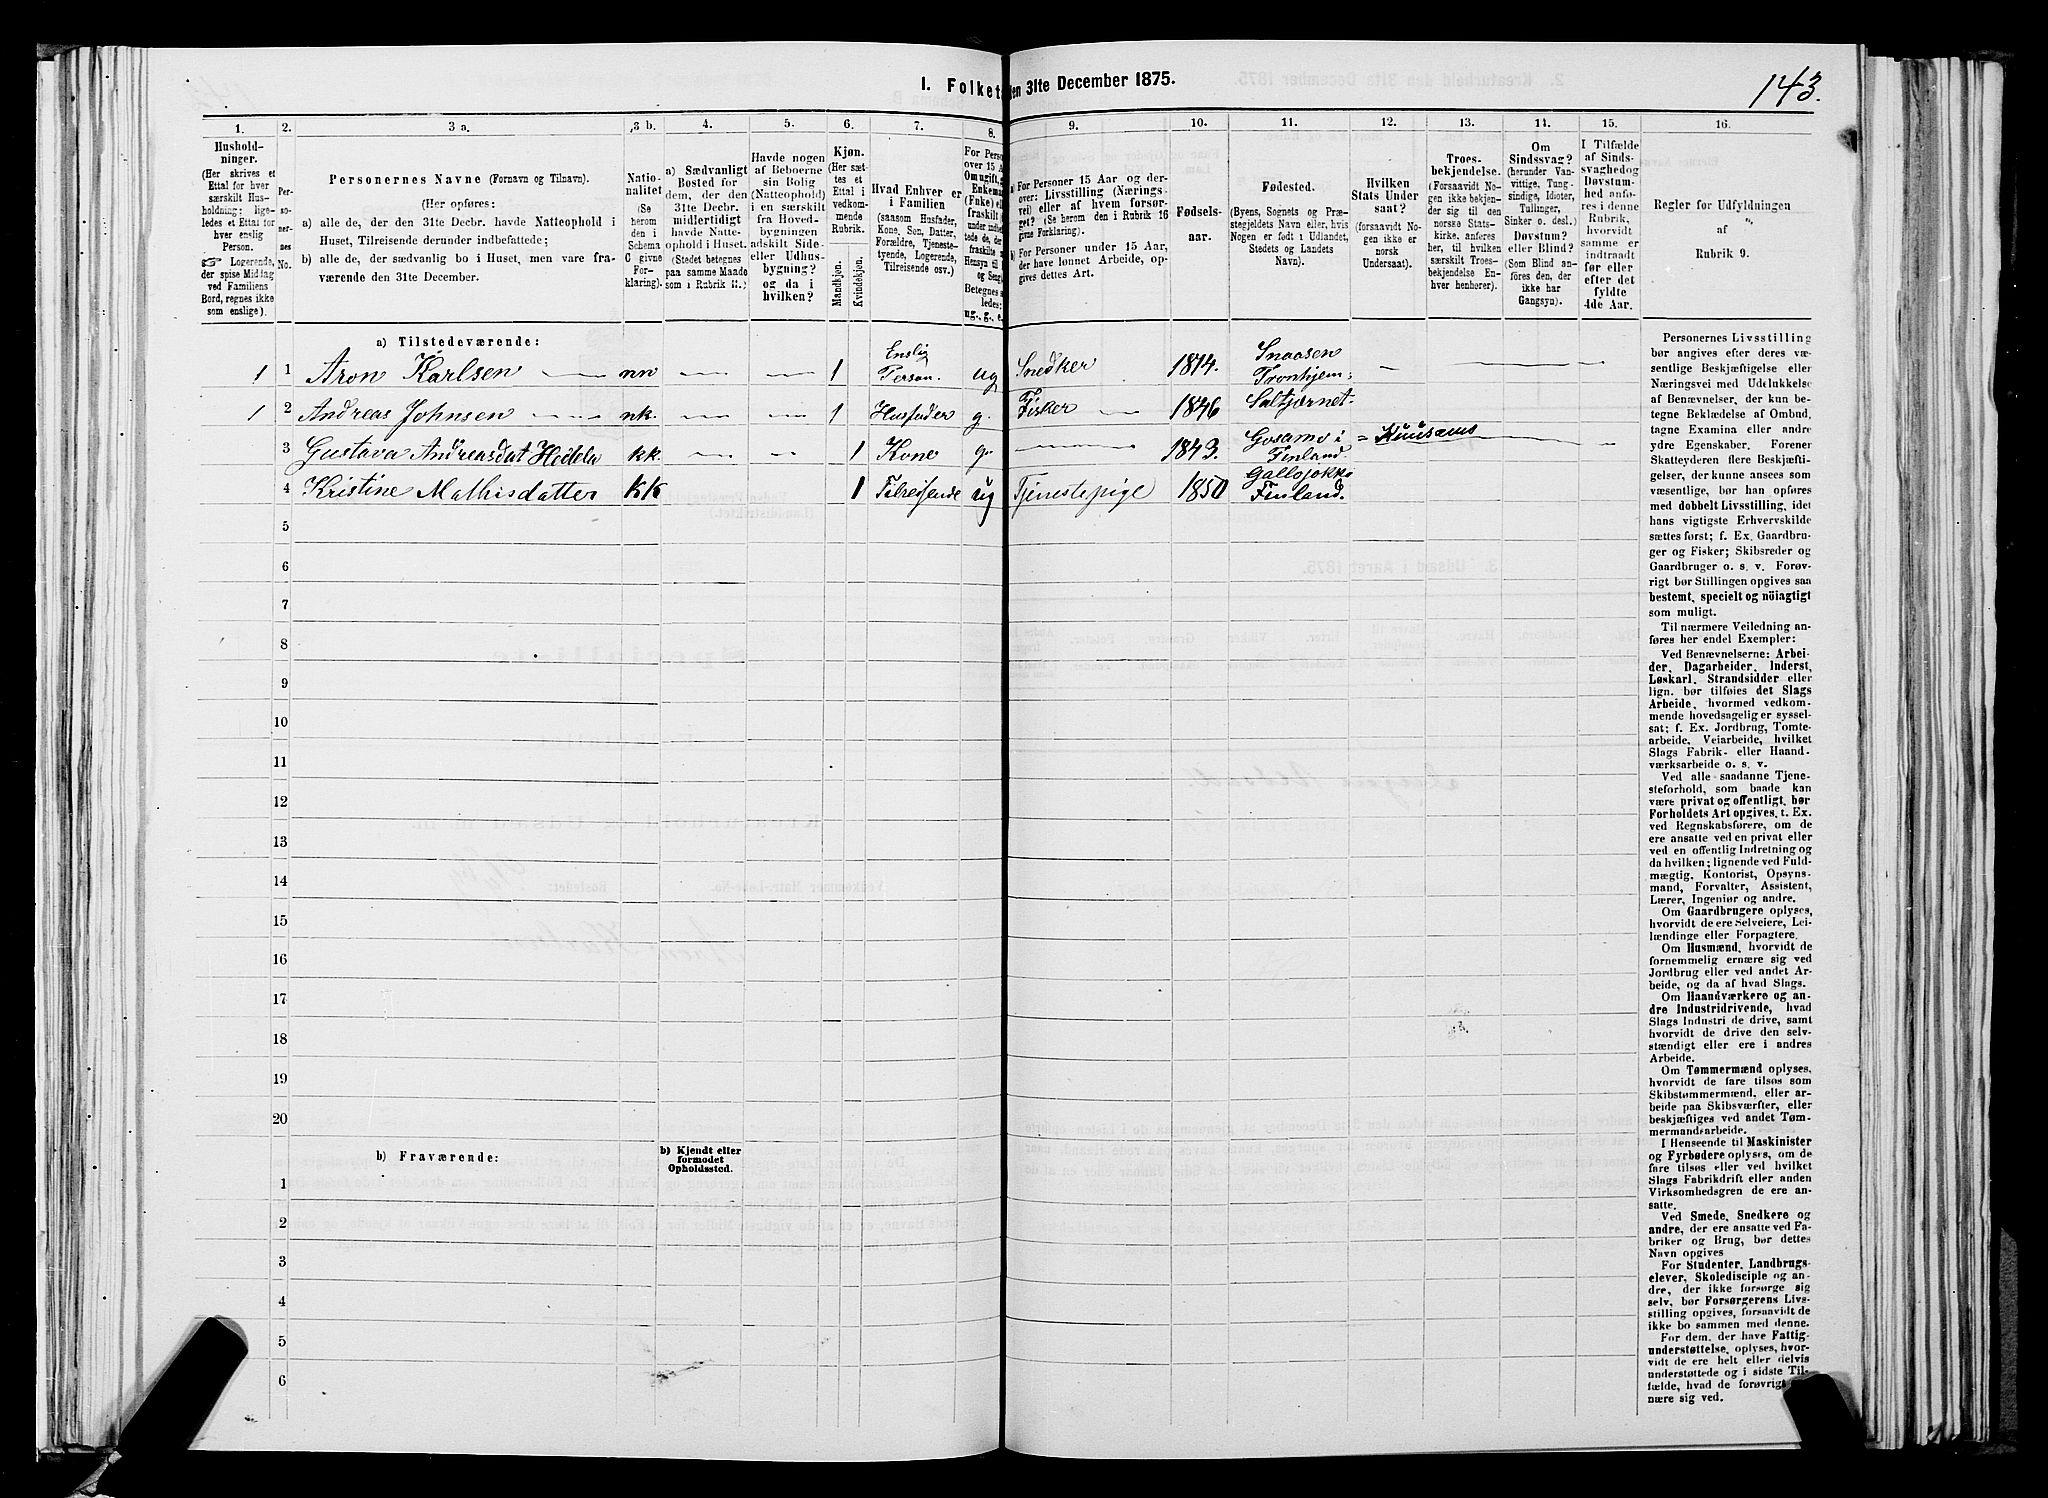 1. Folket den 31te December 1875.
143.
1.
2.
3 a.
3 b.
4.
5.
6.
7.
8.
9.
10.
11.
12.
13.
14.
15.
16.
Hushold-
ninger.
(Her skrives et
Ettal for hver
særskilt Hus-
holdning; lige-
ledes et Ettal for
hver enslig
Person.
☞ Logerende,
der spise Middag
ved Familiens
Bord, regnes ikke
som enslige).
Per-
so-
ner-
nes
No.
Personernes Navne (Fornavn og Tilnavn).
(Her opføres:
a) alle de, der den 31te Decbr. havde Natteophold i
Huset, Tilreisende derunder indbefattede;
b) alle de, der sædvanlig bo i Huset, men vare fra-
værende den 31te December.
Natio-
nalitet
(Se
herom
den i
Schema
C givne
For-
klaring).
a) Sædvanligt
Bosted for
dem, der den
31te Decbr.
midlertidigt
havde Natte-
ophold i Huset.
(Stedet betegnes
paa samme Maade
som i Rubrik 11.)
Havde nogen
af Beboerne
sin Bolig
(Natteophold)
i en særskilt
fra Hoved-
bygningen
adskilt Side-
eller Udhus-
bygning?
og da i
hvilken?
Kjøn.
(Her sæt-
tes et
Ettal i
vedkom-
mende
Rubrik.
Mandkjøn.
Kvindekjøn.
Hvad Enhver er
i Familien
(saasom Husfader,
Kone, Søn, Datter,
Forældre, Tjeneste-
tyende, Logerende,
Tilreisende osv.)
For Perso
over 15 A
Omugift,
Enkema
(Fnke) el
fraskilt
under indbe
tede de,
Hensyn til
og Seng
Betegnes s
ledes:
ug., g., e.
a) For Personer 15 Aar og der-
over: Livsstilling (Nærings-
vei) eller af hvem forsør-
get? (Se herom den i Rubrik 16
givne Forklaring).
b) For Personer under 15 Aar,
de have lønnet Arbeide, op-
gives dettes Art.
Fødsels-
aar.
Fødested.
(Byens, Sognets og Præ-
stegjeldets Navn eller, hvis
Nogen er født i Udlandet,
Stedets og Landets
Navn).
Hvilken
Stats Under
saat?
(forsaavidt No-
gen ikke er
norsk
Undersaat).
Troes-
bekjendelse.
(Forsaavidt No-
gen ikke bekjen-
der sig til den
norske Stats-
kirke, anføres
her, til hvilken
særskilt Troes-
bekjendelse En-
hver henhører).
Om
Sindssvag?
(herunder Van-
vittige, Tung-
sindige, Idioter,
Tullinger,
Sinker o. desl.)
Døvstum?
eller Blind?
(Som Blind an-
føres den, der
ikke har
Gangsyn).
I Tilfælde
af Sinds-
svaghed og
Døvstum-
hed anfø-
res i denne
Rubrik,
hvorvidt
samme er
indtraadt
før eller
efter det
fyldte
4de Aar.
Regler for Udfyldningen
af
Rubrik 9.
a) Tilstedeværende:
1 1 Aron Karlsen nn 1 Enslig Person. ug Snedker 1814. Snaasen Tronhjem
1 2 Andreas Johnsen nk. 1 Husfader g. Fisker 1846 Saltjernet
3 Gustava Andreasdat Heikela kk. 1 Kone g. 1843. Gosamo i Finland. Kuusamo
4 Kristine Mathisdatter kk 1 Tilreisende ug Tjenestepige 1850 Gallojokko Finland.
5
6
7
8
9
10
11
12
13
14
15
16
17
18
19
20
b) Fraværende:
b) Kjendt eller
formodet
Opholdssted.
1
2
3
4
5
6
Personernes Livsstilling
bør angives efter deres væ-
sentlige Beskjæftigelse eller
Næringsvei med Udelukkelse
af Benævnelser, der kun be-
tegne Beklædelse af Ombud,
tagne Examina eller andre
ydre Egenskaber. Forener
Skatteyderen flere Beskjæfti-
gelser, der kunne ansees som
væsentlige, bør han opføres
med dobbelt Livsstilling, idet
hans vigtigste Erhvervskilde
sættes først; f. Ex. Gaardbru-
ger og Fisker; Skibsreder og
Gaardbruger o. s. v. Forøv-
rigt bør Stillingen opgives saa
bestemt, specielt og nöiagtigt
som muligt.
Til nærmere Veiledning an-
føres her endel Exempler:
Ved Benævnelserne: Arbei-
der, Dagarbeider, Inderst,
Løskarl, Strandsidder eller
lign. bør tilføies det Slags
Arbeide, hvormed vedkom-
mende hovedsagelig er syssel-
sat; f. Ex. Jordbrug, Tomte-
arbeide, Veiarbeide, hvilket
Slags Fabrik- eller Haand-
værksarbeide o. s. v.
Ved alle saadanne Tjene-
steforhold, som baade kan
være privat og offentligt, bør
Forholdets Art opgives, t. Ex.
ved Regnskabsførere, om de
ere ansatte ved en privat eller
ved en offentlig Indretning og
da hvilken; lignende ved Fuld-
mægtig, Kontorist, Opsyns-
mand, Forvalter, Assistent,
Lærer, Ingeniør og andre.
Om Gaardbrugere oplyses,
hvorvidt de ere Selveiere, Lei-
lændinge eller Forpagtere.
Om Husmænd, hvorvidt de
fornemmelig ernære sig ved
Jordbrug eller ved andet Ar-
beide, og da af hvad Slags.
Om Haandværkere og an-
dre Industridrivende, hvad
Slags Industri de drive, samt
hvorvidt de drive den selv-
stændigt eller ere i andres
Arbeide.
Om Tømmermænd oplyses,
hvorvidt de fare tilsøs som
Skibstømmermænd, eller ar-
beide paa Skibsværfter, eller
beskjæftiges ved andet Tøm-
mermandsarbeide.
I Henseende til Maskinister
og Fyrbødere oplyses, om de
fare tilsøs eller ved hvilket
Slags Fabrikdrift eller anden
Virksomhedsgren de ere an-
satte.
Ved Smede, Snedkere og
andre, der ere ansatte ved Fa-
briker og Brug, bør dettes
Navn opgives
For Studenter, Landbrugs-
elever, Skoledisciple og an-
dre, der ikke forsørge sig
selv, bør Forsørgerens Livs-
stilling opgives, forsaavidt de
ikke bo sammen med denne.
For dem, der have Fattig-
understøttelse, oplyses, hvor-
vidt de ere helt eller delvis
understøttede og i sidste Til-
fælde, hvad de forøvrigt
nære sig ved.